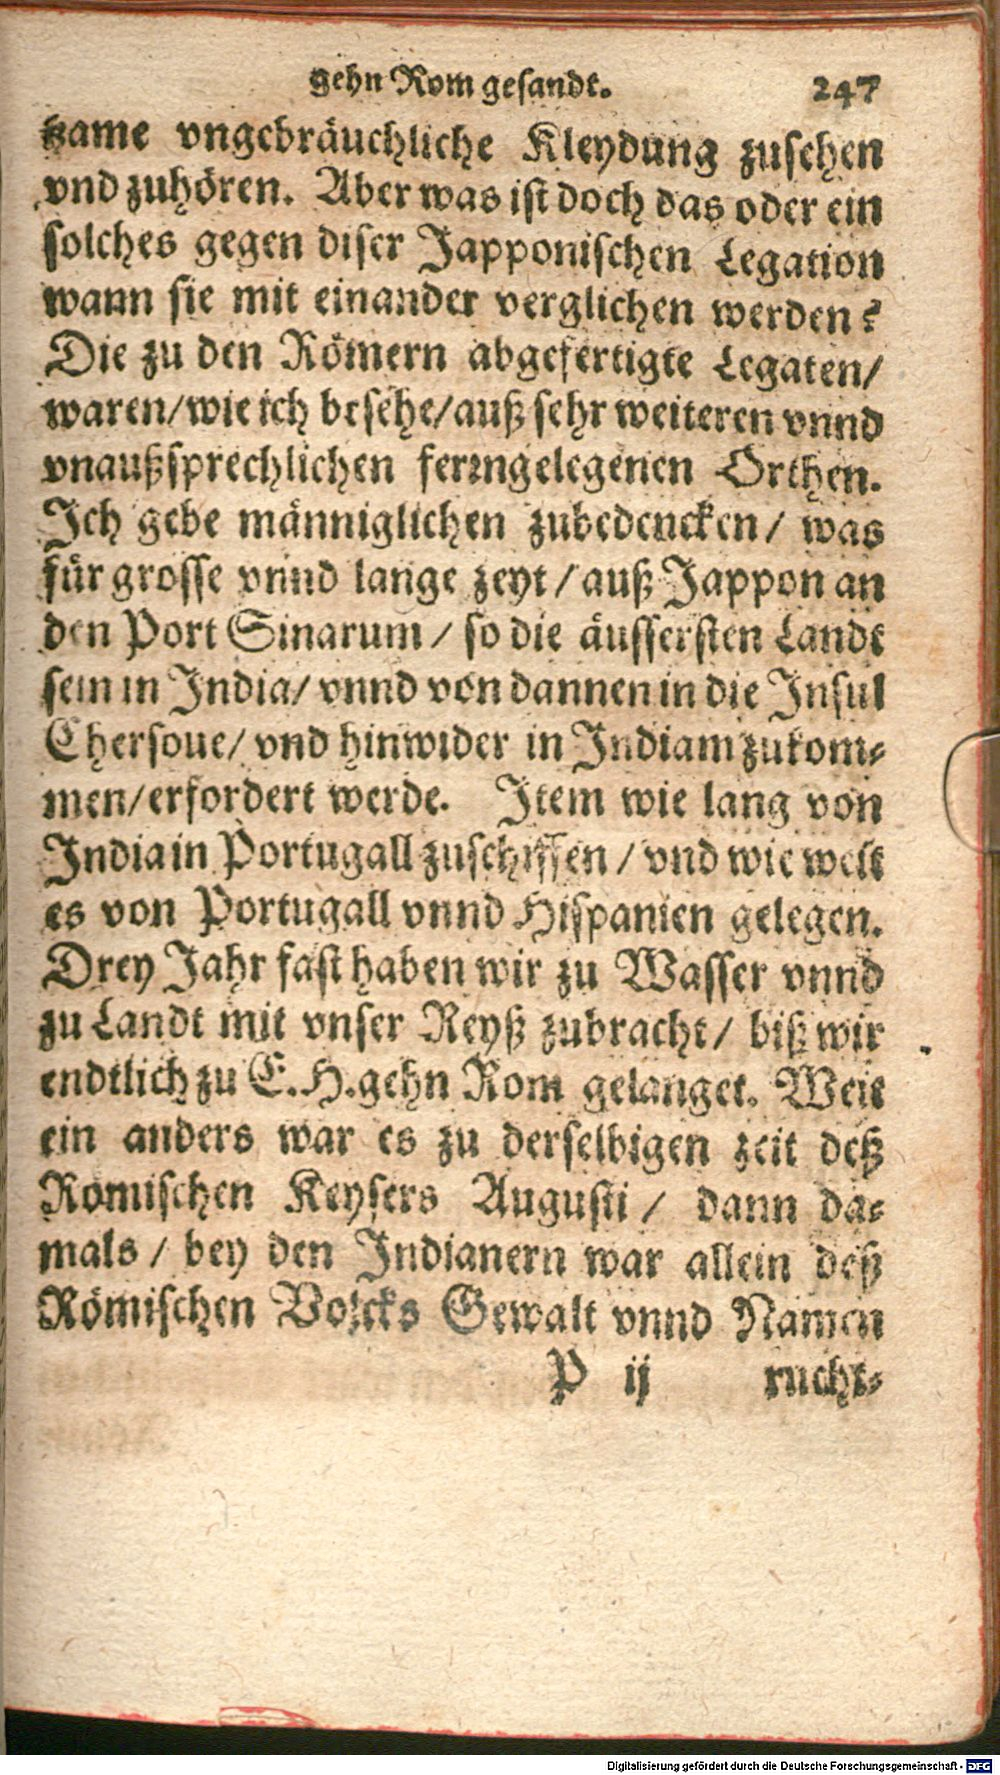 gehn Rom gesandt. 247
tzame vngebräuchliche Kleydung zusehen
vnd zuhören. Aber was ist doch das oder ein
solches gegen diser Japponischen Legation
wann sie mit einander verglichen werden?
Die zu den Römern abgefertigte Legaten/
waren/wie ich besehe/auß sehr weiteren vnnd
vnaußsprechlichen ferrngelegenen Orthen.
Ich gebe männiglichen zubedencken/ was
für grosse vnnd lange zeyt/auß Jappon an
den Port Sinarum/ so die äussersten Landt
sein in India/ vnnd von dannen in die Insul
Chersoue/ vnd hinwider in Indiam zukom-
men/erfordert werde. Item wie lang von
India in Portugall zuschiffen/ vnd wie weit
es von Portugall vnnd Hispanien gelegen.
Drey Jahr fast haben wir zu Wasser vnnd
zu Landt mit vnser Reyß zubracht/ biß wir
endtlich zu E. H. gehn Rom gelanget. Weit
ein anders war es zu derselbigen zeit deß
Römischen Keysers Augusti/ dann da-
mals/ bey den Indianern war allein deß
Römischen Volcks Gewalt vnnd Namen
P ij rucht-
Digitalisierung gefördert durch die Deutsche Forschungsgemeinschaft - DFG